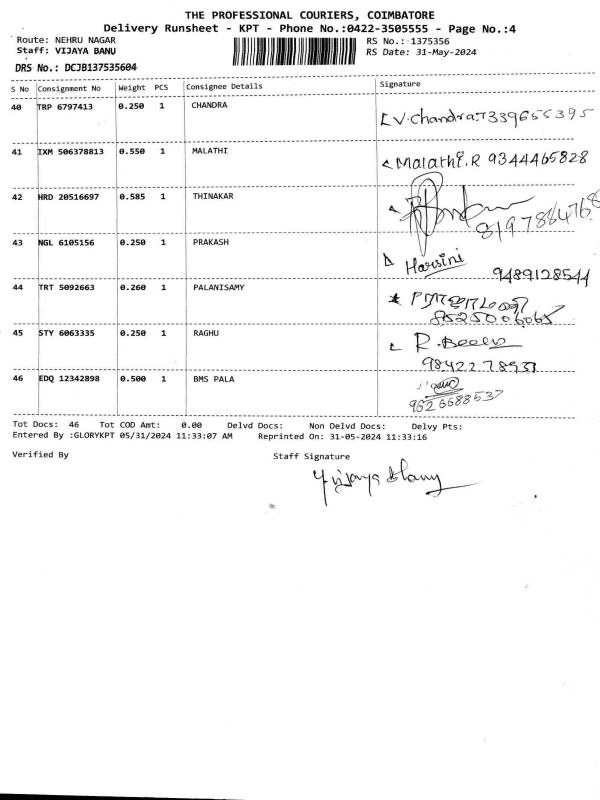 THE PROFESSIONAL COURIERS, COIMBATORE
Delivery Runsheet - KPT - Phone No.:0422-3505555 - Page No.:4
Route: NEHRU NAGAR RS No.: 1375356
Staff: VIJAYA BANU RS Date: 31-May-2024
DRS No.: DCJB137535604
S No Consignment No Weight PCS Consignee Details Signature
40 TRP 6797413 0.250 1 CHANDRA V.Chandra 7339656395
41 IXM 506378813 0.550 1 MALATHI Malathi.R 9344465828
42 HRD 20516697 0.585 1 THINAKAR 8197884768
43 NGL 6105156 0.250 1 PRAKASH Harsini 9489128544
44 TRT 5092663 0.260 1 PALANISAMY
45 STY 6063335 0.250 1 RAGHU R.
46 EDQ 12342898 0.500 1 BMS PALA 9626688537
Tot Docs: 46 Tot COD Amt: 0.00 Delvd Docs: Non Delvd Docs: Delvy Pts:
Entered By :GLORYKPT 05/31/2024 11:33:07 AM Reprinted On: 31-05-2024 11:33:16
Verified By Staff Signature